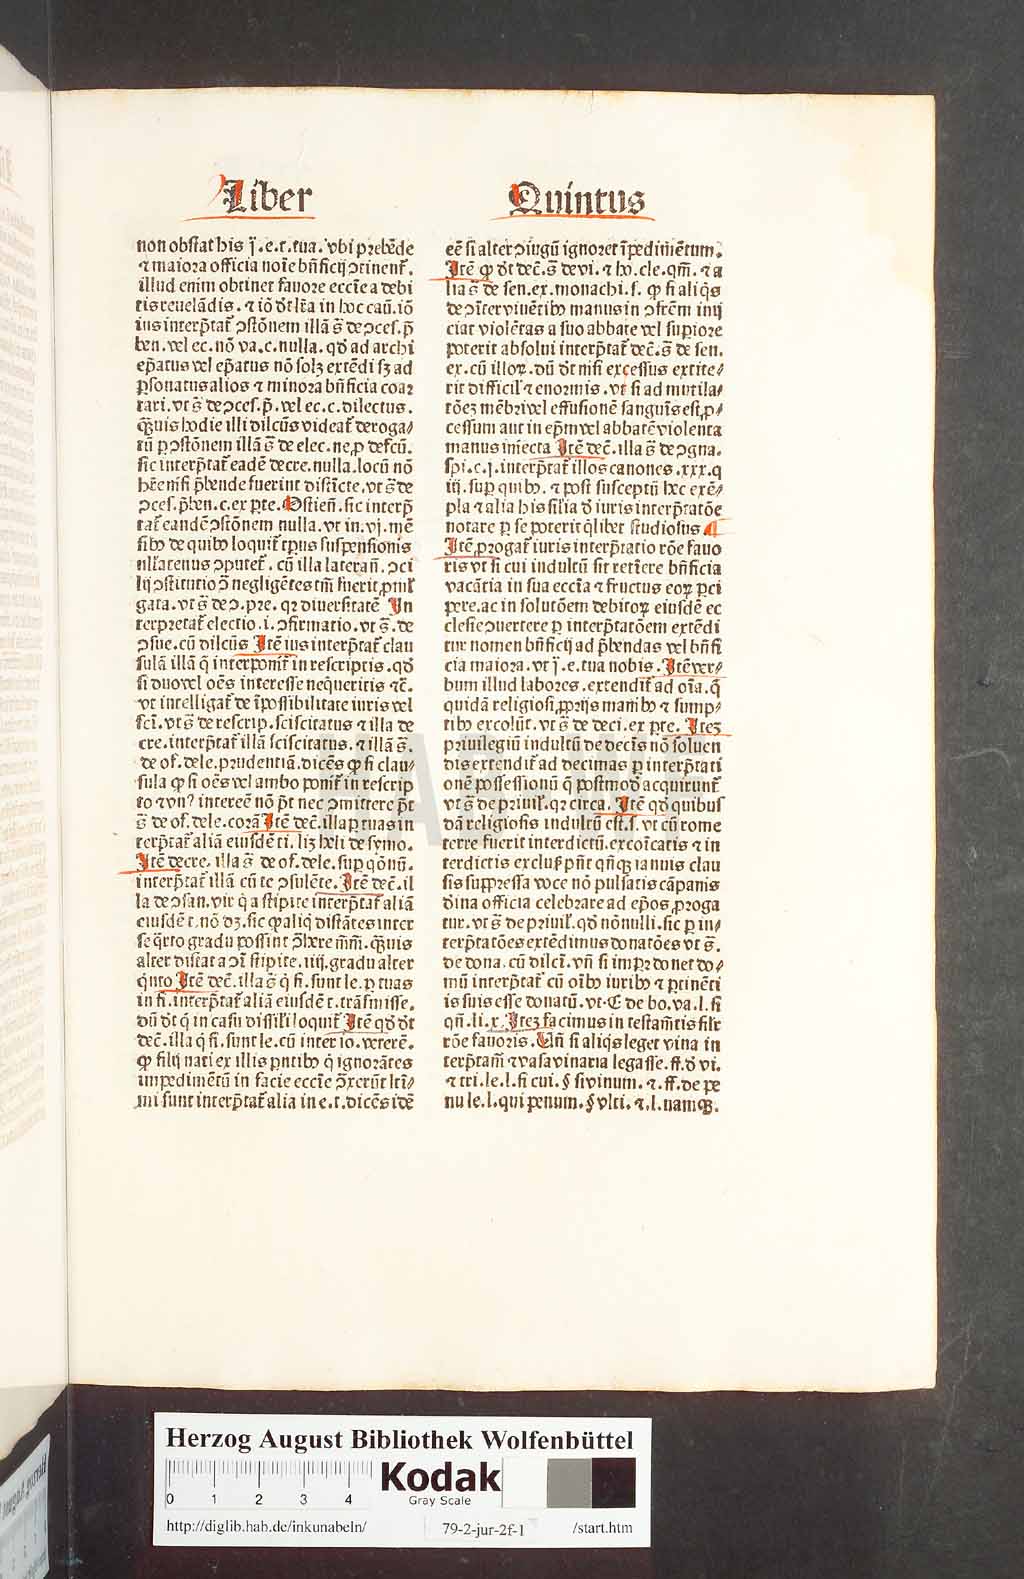 Liber
Quintus
non obstat his j̄.e.t.tua.vbi prebēde
⁊ maiora officia noīe bn̄ficij ↄtinent᷑.
illud enim obtinet fauore eccīe a debi
tis reuelādis.⁊ iō dr̄ lr̄a in hoc caū.iō
ius interp̄tat᷑ ↄstōnem illā s̄ de ↄces.p̄
ben.vel ec.nō va.c.nulla.qd̓ ad archi
ep̄atus vel ep̄atus nō solꝫ extēdi sꝫ ad
ꝑsonatus alios ⁊ minora bn̄ficia coar
tari.vt s̄ de ↄces.p̄.vel ec.c.dilectus.
q̄uis hodie illi dilcūs videat᷑ deroga⸗
tū ꝑ ↄstōnem illā s̄ de elec.ne ꝓ defcū.
sic interp̄tat᷑ eadē decre.nulla.locū nō
hr̄e nisi p̄bende fuerint distīcte.vt s̄ de
ↄces.p̄ben.c.ex ꝑte.Ostien̄.sic interp̄
tat᷑ eandē ↄstōnem nulla.vt in.vj.mē
sibꝰ de quibꝰ loquit᷑ tꝑus suspensionis
nllatenus ↄputet᷑.cū illa lateran̄.ↄci
lij ↄstitutio ↄ̄ negligētes tm̄ fuerit ꝓml᷑
gata.vt s̄ de ↄ.pre.qꝛ diuersitatē In
terpretat᷑ electio.i.ↄfirmatio.vt s̄.de
ↄsue.cū dilcūs Itē ius interp̄tat᷑ clau
sulā illā q̄ interponit᷑ in rescriptis.qd̓
si duo vel oēs interesse neq̄ueritis ⁊c̄.
vt intelligat᷑ de īpossibilitate iuris vel
fcī.vt s̄ de rescrip.sciscitatus ⁊ illa de
cre.interp̄tat᷑ illā sciscitatus.⁊ illā s̄.
de of.dele.prudentiā.dicēs ꝙ si clau⸗
sula ꝙ si oēs vel ambo ponit᷑ in rescrip
to ⁊ vnꝰ intereē nō p̄t nec ↄmittere p̄t
s̄ de of.dele.corā Itē dec̄.illa ꝑ tuas in
terp̄tat᷑ aliā eiusdē ti.licꝫ heli de symo.
Itē decre.illa s̄ de of.dele.suꝑ qōnū.
interp̄tat᷑ illā cū te ↄsulēte.Itē dec̄.il
la de ↄsan.vir q̇ a stipite interp̄tat᷑ aliā
eiusdē t.nō dꝫ.sic ꝙ aliq̇ distātes inter
se q̄rto gradu possint ↄ̄here m̄m.q̄uis
alter distat a ↄī stipite.iiij.gradu alter
q̇nto Itē dec̄.illa s̄ q̇ fi.sunt le.ꝑ tuas
in fi.interp̄tat᷑ aliā eiusdē t.trāsmisse.
dū dr̄ q̇ in casu dissil᷑i loquit᷑ Itē qd̓ dr̄
dec̄.illa q̇ fi.sunt le.cū inter io.veterē.
ꝙ filij nati ex illis ꝑntibꝰ q̇ ignorātes
impedimētū in facie eccīe ↄ̄xerūt lti⸗
mi sunt interp̄tat᷑ alia in e.t.dicēs idē
eē si alter ↄiugū ignoret īpedimētum.
Itē ꝙ dr̄ dec̄.s̄ de vi.⁊ ho.cle.qm̄.⁊ a
lia s̄ de sen.ex.monachi.s.ꝙ si aliq̇s
de ↄīter viuētibꝰ manus in ↄfrēm inij
ciat violētas a suo abbate vel suꝑiore
poterit absolui interp̄tat᷑ dec̄.s̄ de sen.
ex.cū illoꝝ.dū dr̄ nisi excessus extite⸗
rit difficil᷑ ⁊ enormis.vt si ad mutila⸗
tōeꝫ mēbri vel effusionē sanguīs est ꝓ⸗
cessum aut in ep̄m vel abbatē violenta
manus iniecta Itē dec̄.illa s̄ de ↄgna.
spi.c.j.interp̄tat᷑ illos canones.xxx.q
iij.suꝑ quibꝰ.⁊ post susceptū hec exē⸗
pla ⁊ alia his sil᷑ia d̓ iuris interp̄tatōe
notare ꝑ se poterit q̇libet studiosus ¶
Itē ꝓrogat᷑ iuris interp̄tatio rōe fauo
ris vt si cui indultū sit retīere bn̄ficia
vacātia in sua eccīa ⁊ fructus eoꝝ ꝑci
pere.ac in solutōem debitoꝝ eiusdē ec
clesie ↄuertere ꝑ interp̄tatōem extēdi
tur nomen bn̄ficij ad p̄bendas vel bn̄fi
cia maiora.vt j̄.e.tua nobis.Itē ver⸗
bum illud labores.extendit᷑ ad oīa.q̄
quidā religiosi ꝓprijs manibꝰ ⁊ sump⸗
tibꝰ excolūt.vt s̄ de deci.ex ꝑte.Iteꝫ
priuilegiū indultū de decīs nō soluen
dis extendit᷑ ad decimas ꝑ interp̄tati
onē possessionū q̄ postmod̓ acquirunt᷑
vt s̄ de priuil᷑.qꝛ circa.Itē qd̓ quibus
dā religiosis indultū est.s.vt cū rome
terre fuerit interdictū.excōicatis ⁊ in
terdictis exclus᷑ pn̄t qn̄qꝫ ianuis clau
sis suppressa voce nō pulsatis cāpanis
d̓ina officia celebrare ad ep̄os ꝓroga
tur.vt s̄ de priuil᷑.qd̓ nōnulli.sic ꝑ in⸗
terp̄tatōes extēdimus donatōes vt s̄.
de dona.cū dilcī.vn̄ si imꝑꝛ donet do⸗
mū interp̄tat᷑ cū oībꝰ iuribꝰ ⁊ ꝑtinēti
is suis esse donatū.vt.C de bo.va.l.si
qn̄.li.x.Iteꝫ facimus in testam̄tis sil᷑r
rōe fauoris.Vn̄ si aliq̇s leget vina in
terp̄tam᷑ ⁊ vasa vinaria legasse.ff.d̓ vi.
⁊ tri.le.l.si cui.§ si vinum.⁊.ff.de pe
nu le.l.qui penum.§ vlti.⁊.l.namqꝫ.
HAB WF
Herzog August Bibliothek Wolfenbüttel
0 1 2 3 4
Kodak
Gray Scale
http://diglib.hab.de/inkunabeln/
79-2-jur-2f-1
/start.htm